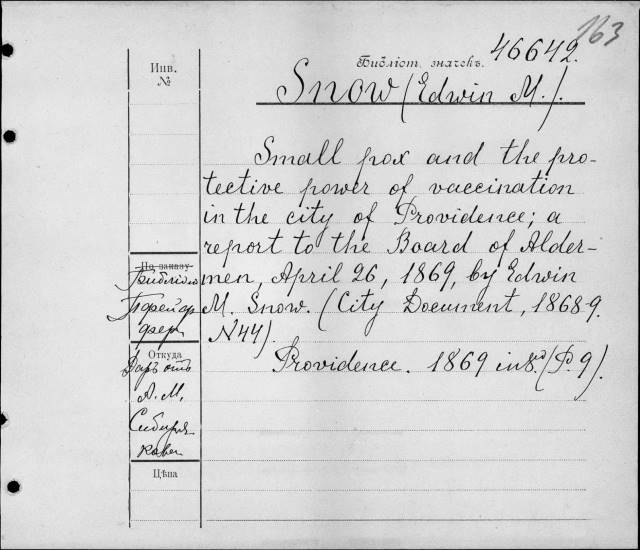 163
46642.
Библіот. значекъ.
Инв.
№
Snow (Edwin M.).
Small pox and the pro-
tective power of vaccination
in the city of Providence; a
report to the Board of Alder-
men, April 26, 1869, by Edwin
M. Snow. (City Document, 1868-9.
N44).
Providence. 1869 in 8vo (P. 9).
По заказу
Библіот
Откуда
Даръ отъ
А. М.
Сибиря
кова
Цѣна